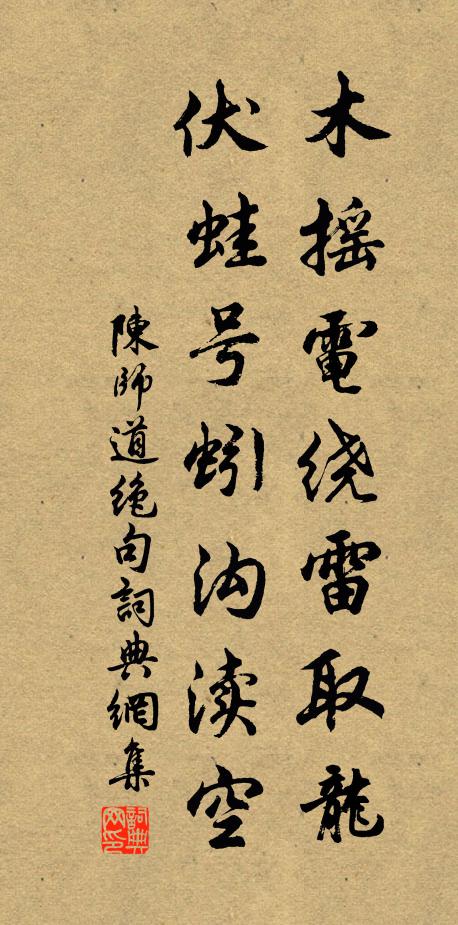 木摇電绕雷取龍
伏蛙号蚓沟渎空
陳師道絶句詞典網集
詞典网印